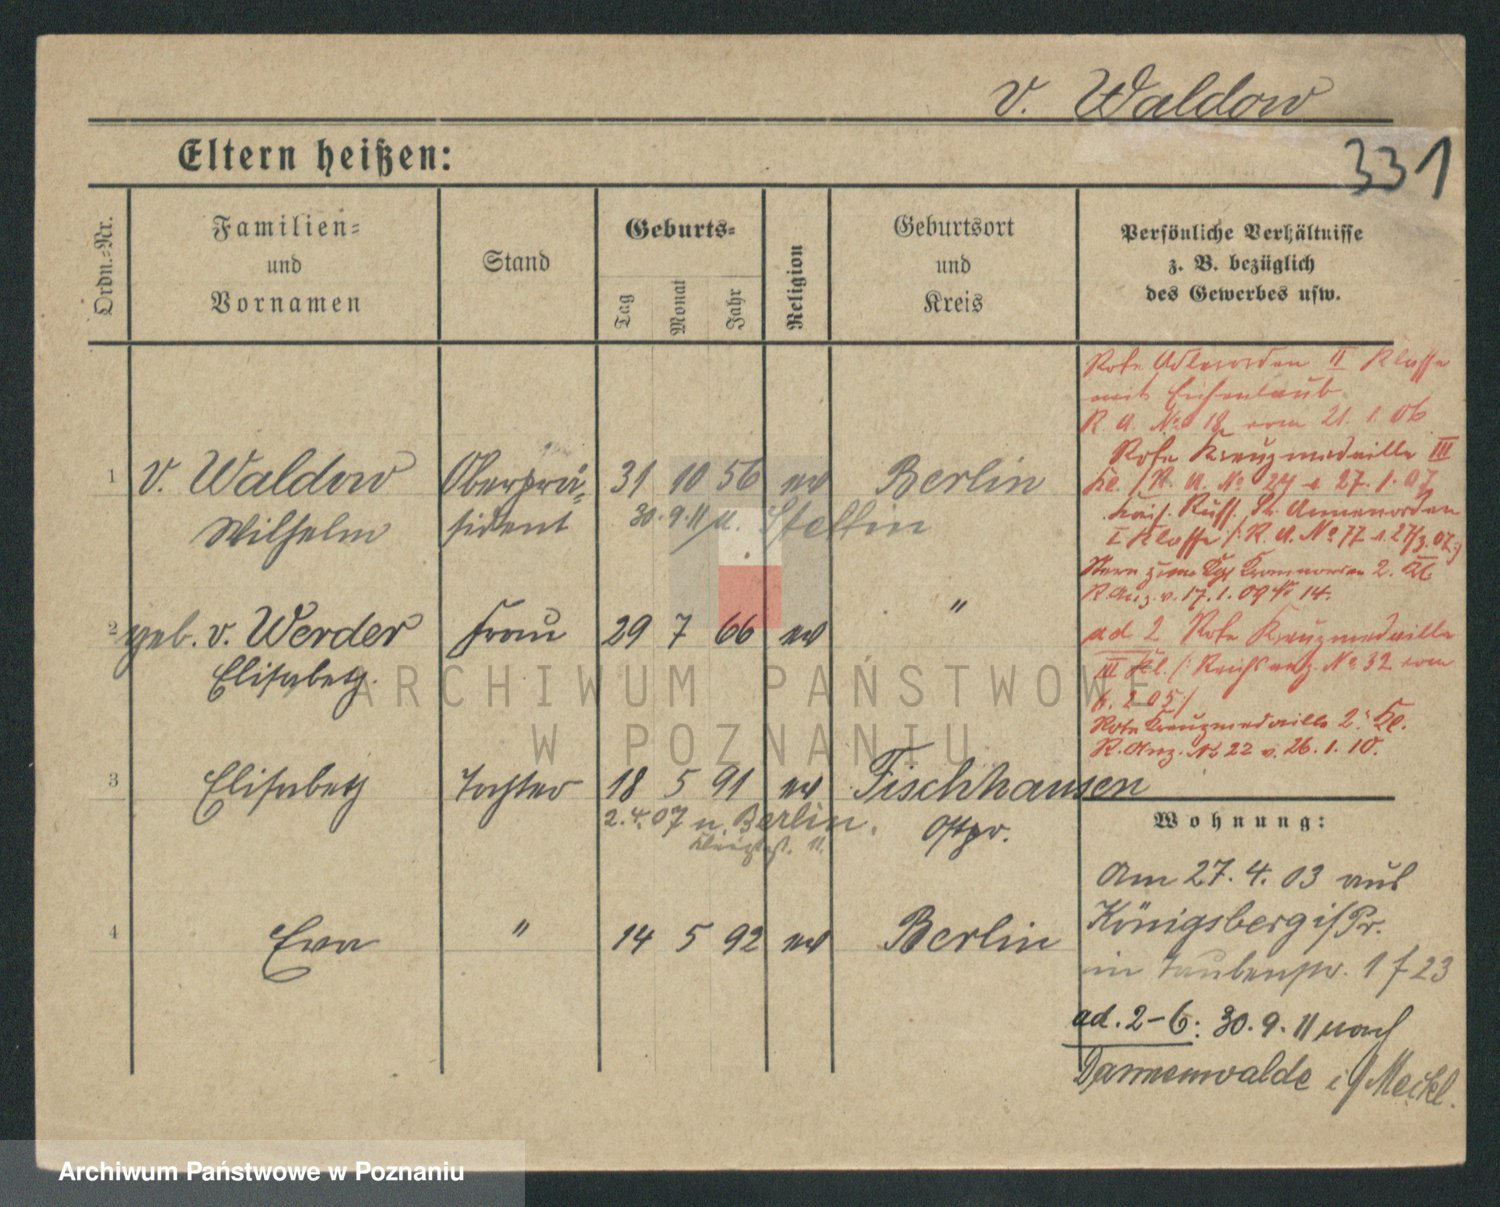 v. Waldow
331
Eltern heißen:
Ordn.=Nr.
Familien=
und
Vornamen
Stand
Geburts=
Tag
Monat
Jahr
Religion
Geburtsort
und
Kreis
Persönliche Verhältnisse
z. B. bezüglich
des Gewerbes usw.
Rote Adlerorden II Klasse
mit Eichenlaub
R. A. No 18 vom 21. 1. 06
Rote Kreuzmedaille III
Kl. /R. A. No 24 v. 27. 1. 07
Kais. Russ. St. Annenorden
I Klasse /: R. A. No 77 v. 27/3. 07:/
Stern zum Kgl Kronenorden 2. Kl
R. Anz. v. 17. 1. 09 No 14.
1 v. Waldow Oberprä= 31 10 56 ev Berlin
Wilhelm sident 30. 9. 11 n. Stettin
2 geb. v. Werder Frau 29 7 66 ev "
Elisabeth.
ad 2 Rote Kreuzmedaille
III Kl. /: Reichsanz. No 32 vom
6. 2 05/
Rote Kreuzmedaille 2. Kl.
R. Anz. No 22 v. 26. 1. 10.
3 Elisabeth Tochter 18 5 91 ev Fischhausen
2. 4. 07 n. Berlin. Ostpr.
11.
4 Eva " 14 5 92 ev Berlin
Wohnung:
Am 27. 4. 03 aus
Königsberg i/Pr.
in Taubenstr. 1 f 23
ad. 2-6: 30. 9. 11 nach
Dannenwalde i/Meckl.
ARCHIWUM PAŃSTWOWE
W POZNANIU
Archiwum Państwowe w Poznaniu